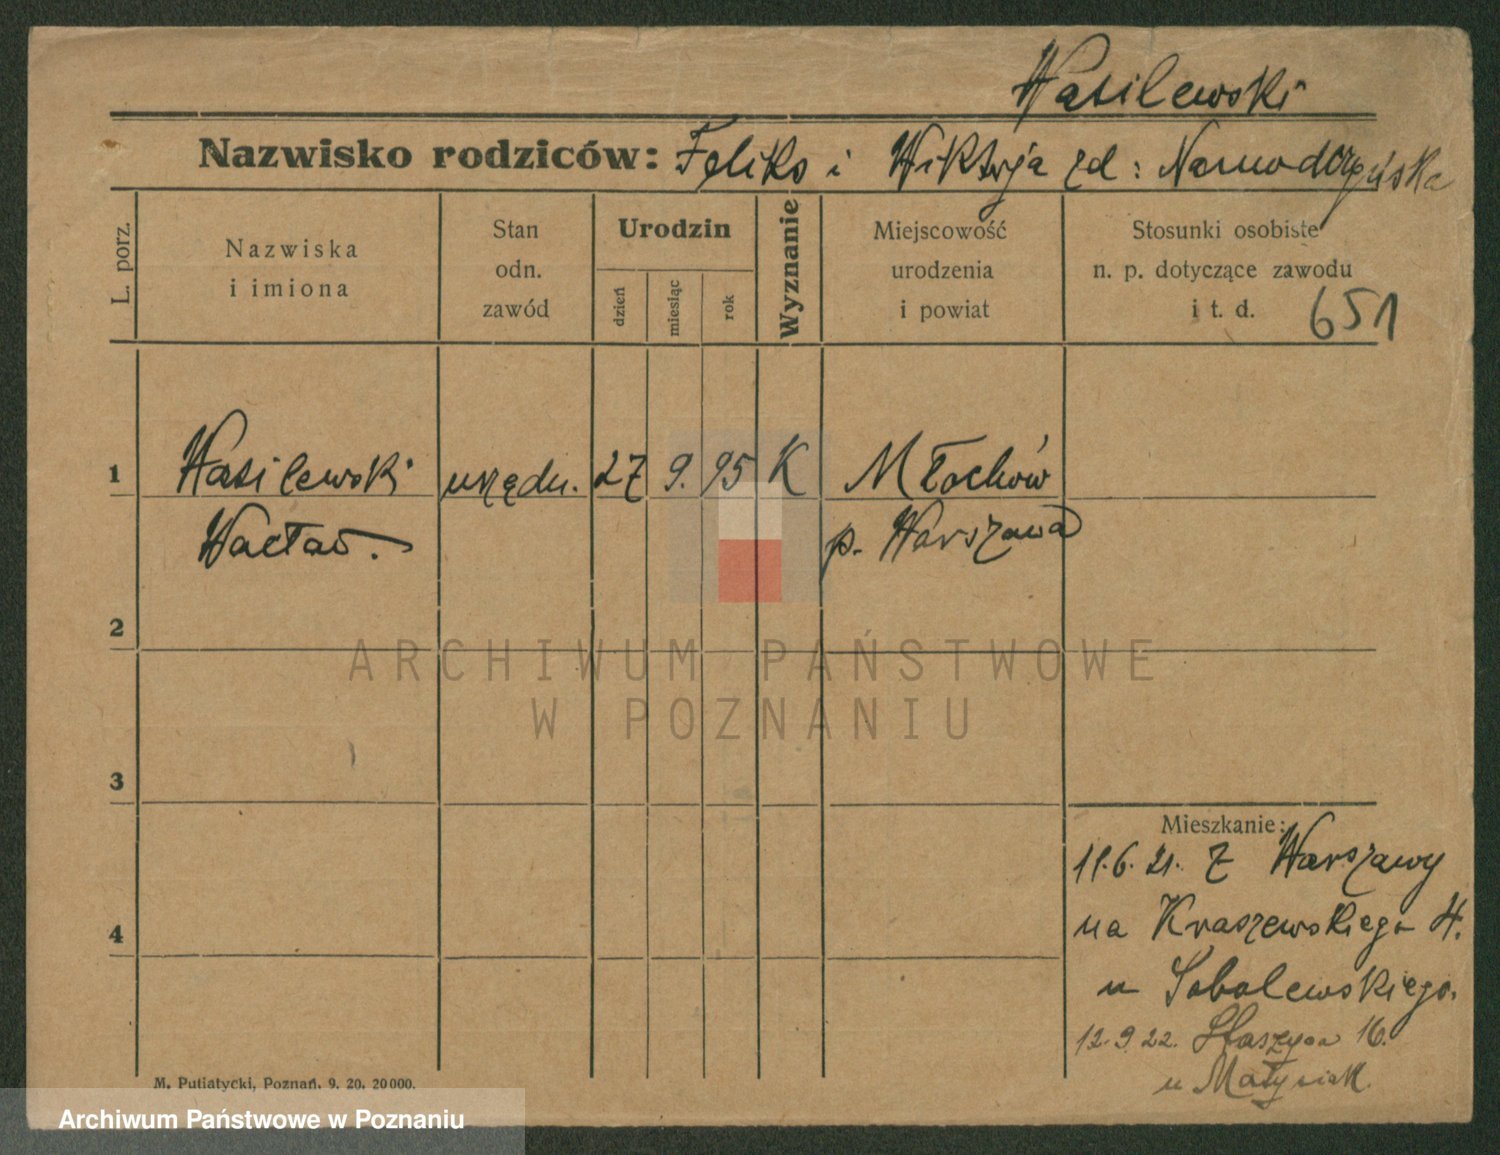 Wasilewski
Nazwisko rodziców: Feliks i Wiktorja zd:
L. porz.
Nazwiska
i imiona
Stan
odn.
zawód
Urodzin
dzień
miesiąc
rok
Wyznanie
Miejscowość
urodzenia
i powiat
Stosunki osobiste
n. p. dotyczące zawodu
i t. d.
651
1 Wasilewski urzędn. 27 9. 95 K Młochów
Wacław. p. Warszawa
2
ARCHIWUM PAŃSTWOWE
W POZNANIU
3
Mieszkanie:
11.6.21. Z Warszawy
4 na Kraszewskiego 4.
u Sobolewskiego.
12.9.22. Staszyca 16.
u Matysiak.
M. Putiatycki, Poznań. 9. 20. 20000.
Archiwum Państwowe w Poznaniu